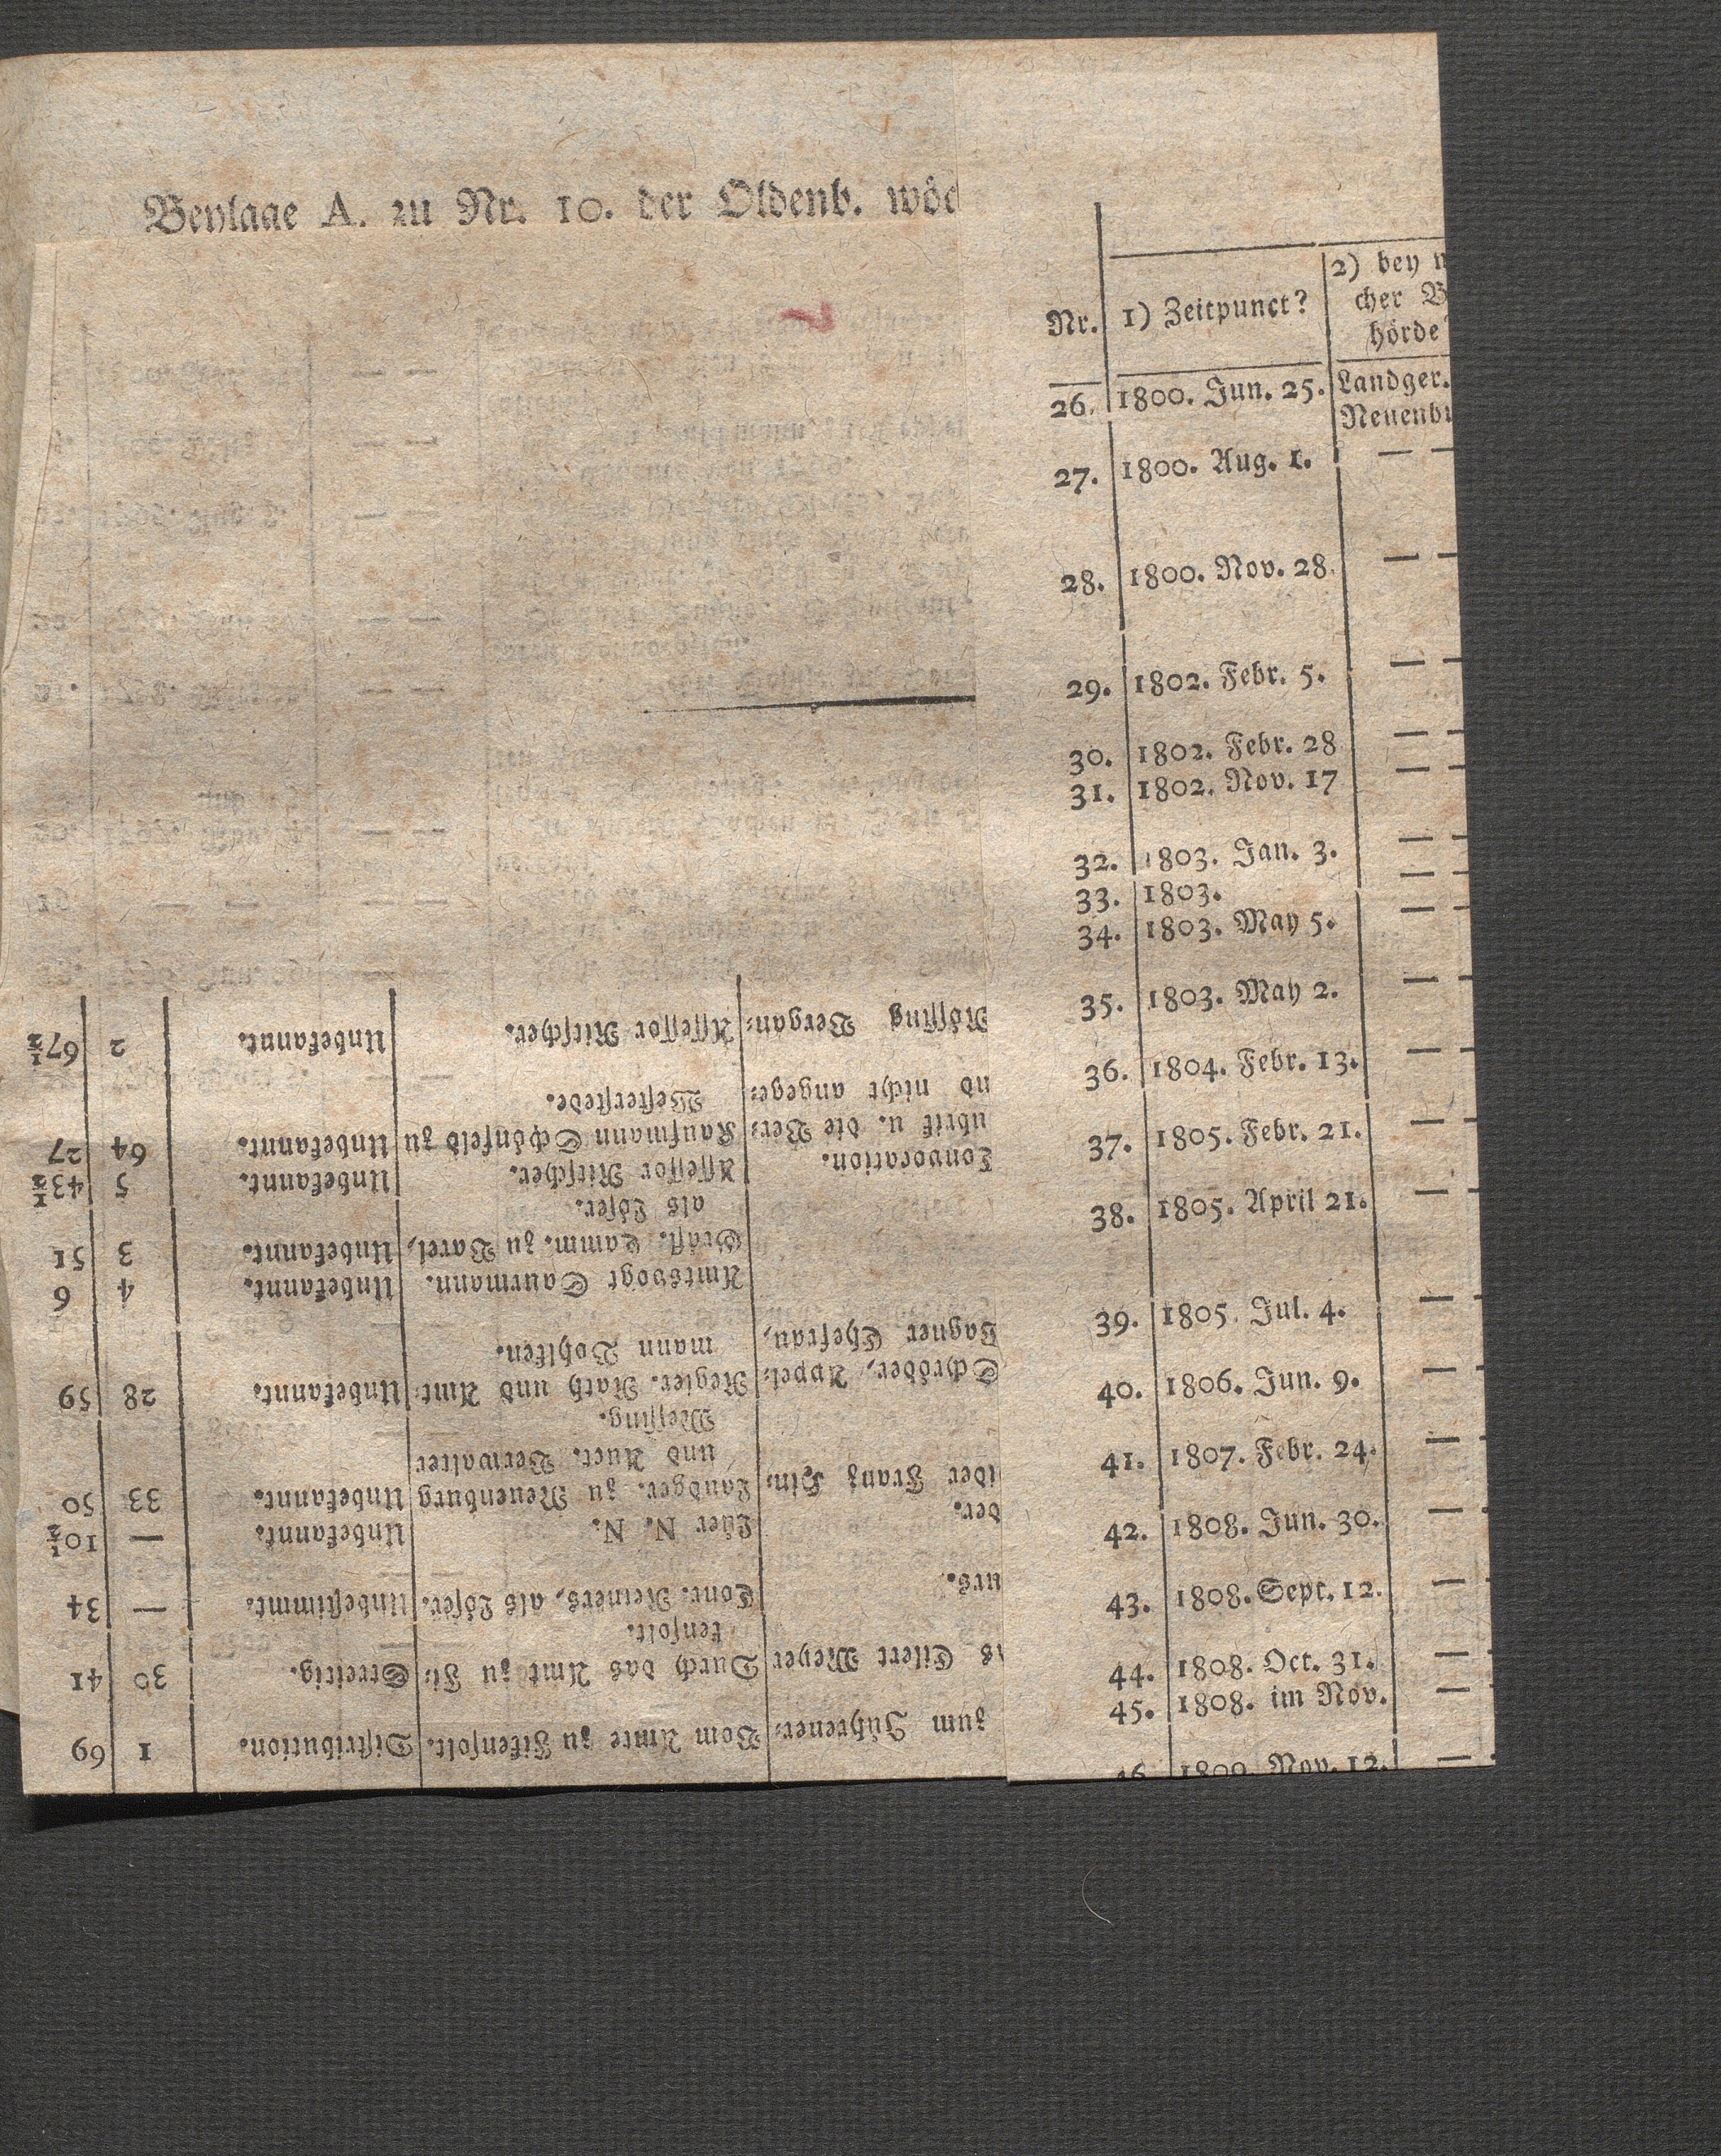 Beylage A. zu Nr. 10. der Oldenb. wöc
Nr. 1) Zeitpunct? 2) bey w
cher B
hörde
26. 1800. Jun. 25. Landger.
Neuenbu
27. 1800. Aug. 1. — —
28. 1800. Nov. 28. — —
29. 1802. Febr. 5. — —
30. 1802. Febr. 28 — —
31. 1802. Nov. 17 — —
32. 1803. Jan. 3. — —
33. 1803. — —
34. 1803. May 5. — —
35. 1803. May 2. — —
36. 1804. Febr. 13. — —
37. 1805. Febr. 21. — —
38. 1805. April 21. — —
39. 1805. Jul. 4. — —
40. 1806. Jun. 9. — —
41. 1807. Febr. 24. — —
42. 1808. Jun. 30. — —
43. 1808. Sept. 12. — —
44. 1808. Oct. 31. — —
45. 1808. im Nov. — —
46. 1809. Nov. 12. — —
zum Jührener= Vom Amte zu Fikensolt. Distribution. 1 69
s Eilert Meyer Durch das Amt zu Fi= Streitig. 30 41
kensolt.
urs. Conr. Reiners, als Löser. Unbestimmt. — 34
der. Lüer N. N. Unbekannt. — 10½
ider Franz Hin= Landger. zu Neuenburg Unbekannt. 33 50
und Auct. Verwalter
Messing.
Schröder, Appel= Regier. Rath und Amt= Unbekannt. 28 59
Lagner Ehefrau, mann Bohlken.
Amtsvogt Caurmann. Unbekannt. 4 6
Gräfl. Camm. zu Varel, Unbekannt. 3 51
als Löser.
Convocation. Assessor Ritscher. Unbekannt. 5 43½
ubrik u. die Ver= Kaufmann Schönfeld zu Unbekannt. 64 27
nd nicht angege= Westerstede.
Rössing Vergan= Assessor Ritscher. Unbekannt. 2 67½